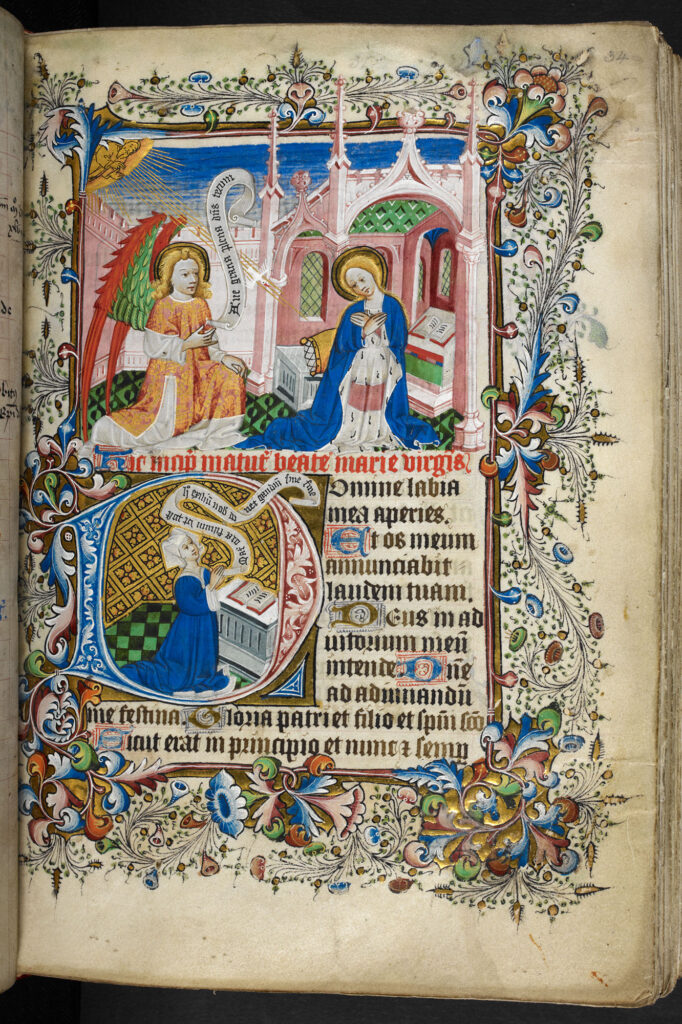 34
Aue gracia plena dns tecum
Hic incip matut beate marie virgis
Domine labia
mea aperies.
Et os meum
annunciabit
laudem tuam.
Deus in ad
iutorium meū
intende Dñe
ad adiuuandū
me festina. Gloria patri et filio et spūi scō
Sicut erat in principio et nunc ⁊ semp